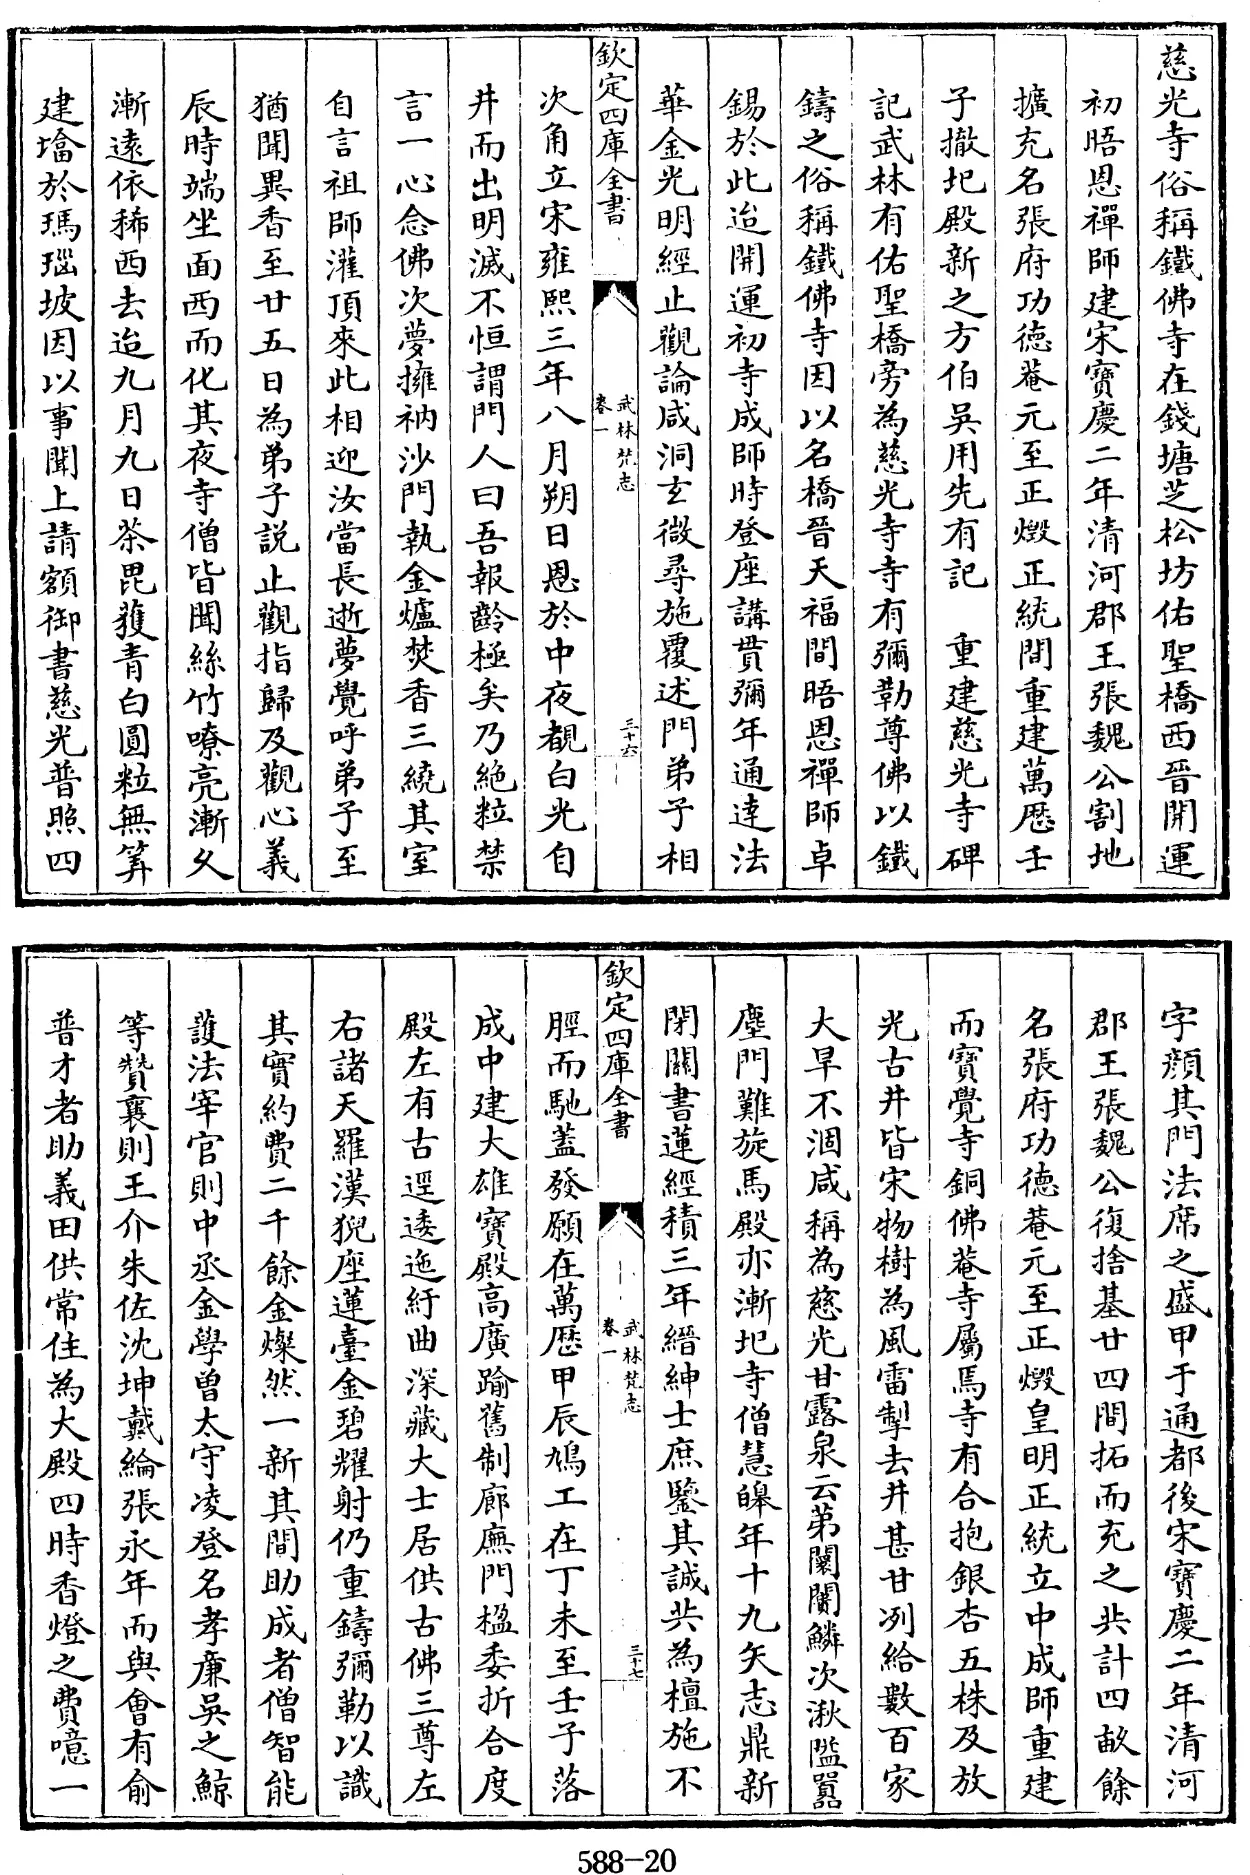 慈光寺俗稱鐵佛寺在錢塘芝松坊佑聖橋西晉開運
初晤恩禪師建宋寶慶二年清河郡王張魏公割地
擴充名張府功德菴元至正燬正統間重建萬厯壬
子撤圮殿新之方伯吳用先有記　重建慈光寺碑
記武林有佑聖橋旁為慈光寺寺有彌勒尊佛以鐵
鑄之俗稱鐵佛寺因以名橋晉天福間晤恩禪師卓
錫於此迨開運初寺成師時登座講貫彌年通達法
華金光明經止觀論咸洞玄微尋施覆述門弟子相
欽定四庫全書
武林梵志
卷一
三十六
次角立宋雍熙三年八月朔日恩於中夜覩白光自
井而出明滅不恒謂門人曰吾報齡極矣乃絶粒禁
言一心念佛次夢擁衲沙門執金爐焚香三繞其室
自言祖師灌頂來此相迎汝當長逝夢覺呼弟子至
猶聞異香至廿五日為弟子説止觀指歸及觀心義
辰時端坐面西而化其夜寺僧皆聞絲竹嘹亮漸久
漸遠依稀西去迨九月九日茶毘獲青白圓粒無筭
建墖於瑪瑙坡因以事聞上請額御書慈光普照四
字顔其門法席之盛甲于通都後宋寶慶二年清河
郡王張魏公復捨基廿四間拓而充之共計四畝餘
名張府功德菴元至正燬皇明正統立中成師重建
而寶覺寺銅佛菴寺屬焉寺有合抱銀杏五株及放
光古井皆宋物樹為風雷掣去井甚甘冽給數百家
大旱不涸咸稱為慈光甘露泉云第闤闠鱗次湫隘囂
塵門難旋馬殿亦漸圮寺僧慧皞年十九矢志鼎新
閉關書蓮經積三年縉紳士庶鑒其誠共為檀施不
欽定四庫全書
武林梵志
卷一
三十七
脛而馳蓋發願在萬厯甲辰鳩工在丁未至壬子落
成中建大雄寶殿高廣踰舊制廊廡門楹委折合度
殿左有古逕逶迤紆曲深藏大士居供古佛三尊左
右諸天羅漢猊座蓮臺金碧耀射仍重鑄彌勒以識
其實約費二千餘金燦然一新其間助成者僧智能
護法宰官則中丞金學曾太守凌登名孝亷吳之鯨
等贊襄則王介朱佐沈坤戴綸張永年而與㑹有俞
普才者助義田供常住為大殿四時香燈之費噫一
588-20